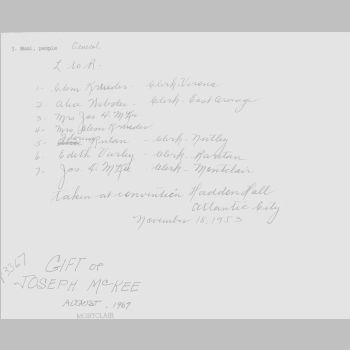 J. Muni. people General
L to R.
1- Glenn Kreider - Clerk-Verona
2 Alia Webster - Clerk - East Orange
3- Mrs Jos. H. McKee
4- Mrs Glenn Kreider
5- Florence Rutan - Clerk - Nutley
6- Edith Varley - Clerk - Raritan
7. Jos. H McKee Clerk - Montclair
taken at convention Haddon Hall
Atlantic City
November 18, 1953
3367
GIFT OF
JOSEPH McKEE
AUGUST, 1967
MONTCLAIR